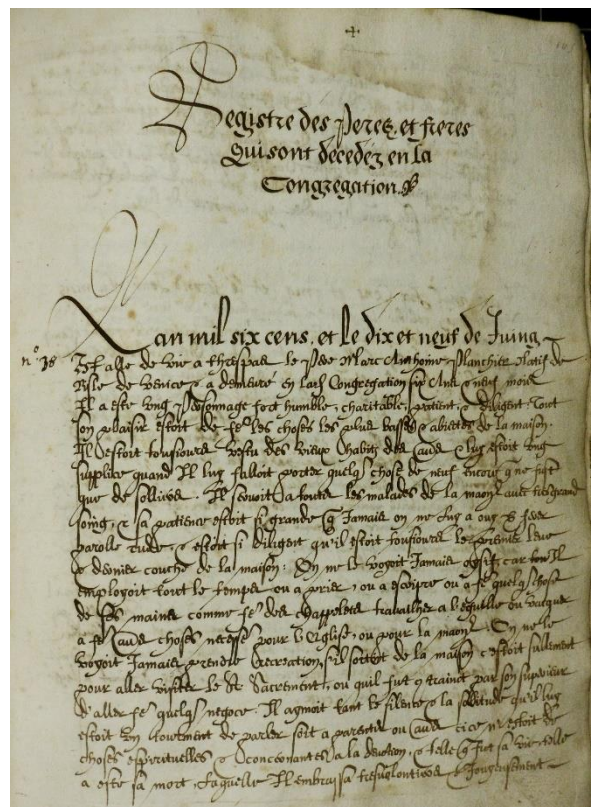 Registre des Peres, et freres
Qui sont decedez en la
Congregation.
Lan mil six cens, et le dix et neuf de Juing
n° 38 Est allé de vie a threspas le Pere Marc Anthoine Planchier Natif de
de Venice & a demeuré en Congregation six Ans & neuf mois
Il a esté ung Personnage fort humble, charitable, patient, & diligent. Tout
son plaisir estoit de les choses les plus basses & abiettes de la maison.
Il estoit tousiours vestu des vieux habitz des & luy estoit ung
supplice quand Il luy falloit porter chose de neuf encores ne fust
que de Il servoit a toutes les malades de la avec grand
soing, & sa patience estoit si grande Jamais on ne luy a ouy
parolle rude, & estoit si diligent qu'il estoit tousiours le premier levé
le dernier couché de la maison. On ne le voyoit Jamais car Il
employoit tout le temps ou a prier, ou a escripre ou a chose
de ses mains comme des chappelets travailher a l'eguille ou vacquer
a choses pour l'Eglise, ou pour la On ne le
voyoit Jamais prendre recreation, s'il sortoit de la maison c'estoit sullement
pour aller visiter le St Sacrement, ou quil fut par son superieur
d'aller negoce. Il aymoit tant le silence & la solitude qu'il luy
estoit un tourment de parler soit a parentz ou ce n'estoit de
choses espirituelles & a la devotion, & telle fut sa vie telle
a esté sa mort, Laquelle Il embrassa & Joyeusement